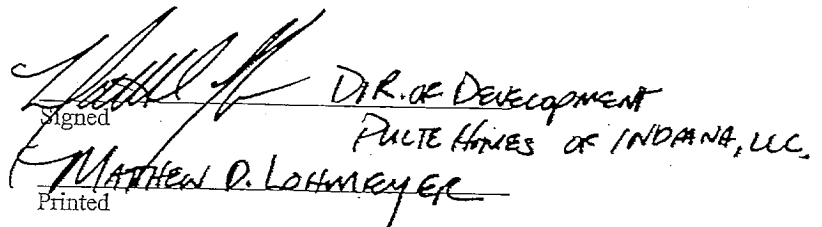 DIR. OF DEVELOPMENT
Signed
PULTE HOMES OF INDIANA, LLC.
MATTHEW D. LOHMEYER
Printed